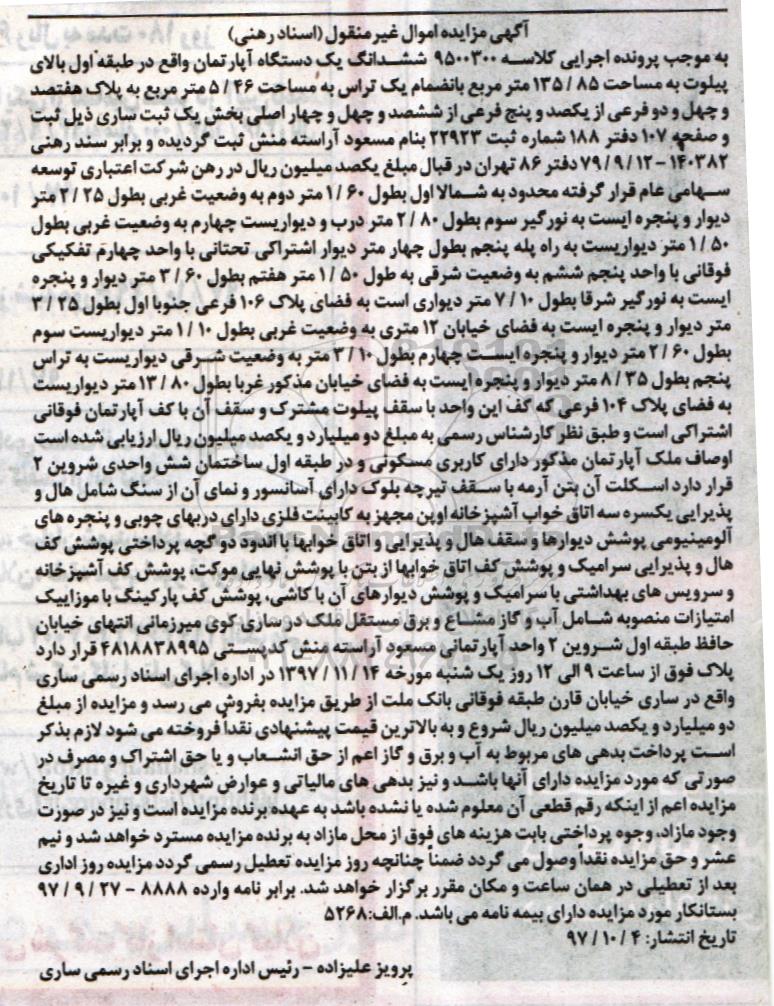 آگهی مزایده اموال غیر منقول (اسناد رهنی)
به موجب پرونده اجرایی کلاسه ۹۵۰۰۳۰۰ ششدانگ یک دستگاه آپارتمان واقع در طبقه اول بالای
پیلوت به مساحت ۸۵ / ۱۳۵ متر مربع بانضمام یک تراس به مساحت ۴۶ / ۵ متر مربع به پلاک هفتصد
و چهل و دو فرعی از یکصد و پنج فرعی از ششصد و چهل و چهار اصلی بخش یک ثبت ساری ذیل ثبت
و صفحه ۱۰۷ دفتر ۱۸۸ شماره ثبت ۲۲۹۲۳ بنام مسعود آراسته منش ثبت گردیده و برابر سند رهنی
۱۴۰۳۸۲ - ۷۹/۹/۱۲ دفتر ۸۶ تهران در قبال مبلغ یکصد میلیون ریال در رهن شرکت اعتباری توسعه
سهامی عام قرار گرفته محدود به شمالا اول بطول ۶۰ / ۱ متر دوم به وضعیت غربی بطول ۲۵ / ۲ متر
دیوار و پنجره ایست به نورگیر سوم بطول ۸۰ / ۲ متر درب و دیواریست چهارم به وضعیت غربی بطول
۵۰ / ۱ متر دیواریست به راه پله پنجم بطول چهار متر دیوار اشتراکی تحتانی با واحد چهارم تفکیکی
فوقانی با واحد پنجم ششم به وضعیت شرقی به طول ۵۰ / ۱ متر هفتم بطول ۶۰ / ۳ متر دیوار و پنجره
ایست به نورگیر شرقا بطول ۱۰ / ۷ متر دیواری است به فضای پلاک ۱۰۶ فرعی جنوبا اول بطول ۲۵ / ۳
متر دیوار و پنجره ایست به فضای خیابان ۱۲ متری به وضعیت غربی بطول ۱۰ / ۱ متر دیواریست سوم
بطول ۶۰ / ۲ متر دیوار و پنجره ایست چهارم بطول ۱۰ / ۳ متر به وضعیت شرقی دیواریست به تراس
پنجم بطول ۳۵ / ۸ متر دیوار و پنجره ایست به فضای خیابان مذکور غربا بطول ۸۰ / ۱۳ متر دیواریست
به فضای پلاک ۱۰۴ فرعی که کف این واحد با سقف پیلوت مشترک و سقف آن با کف آپارتمان فوقانی
اشتراکی است و طبق نظر کارشناس رسمی به مبلغ دو میلیارد و یکصد میلیون ریال ارزیابی شده است
اوصاف ملک آپارتمان مذکور دارای کاربری مسکونی و در طبقه اول ساختمان شش واحدی شروین ۲
قرار دارد اسکلت آن بتن آرمه با سقف تیرچه بلوک دارای آسانسور و نمای آن از سنگ شامل هال و
پذیرایی یکسره سه اتاق خواب آشپزخانه اوپن مجهز به کابینت فلزی دارای دربهای چوبی و پنجره های
آلومینیومی پوشش دیوارها و سقف هال و پذیرایی و اتاق خوابها با اندود دو گچه پرداختی پوشش کف
هال و پذیرایی سرامیک و پوشش کف اتاق خوابها از بتن با پوشش نهایی موکت، پوشش کف آشپزخانه
و سرویس های بهداشتی با سرامیک و پوشش دیوارهای آن با کاشی، پوشش کف پارکینگ با موزاییک
امتیازات منصوبه شامل آب و گاز مشاع و برق مستقل ملک در ساری کوی میرزمانی انتهای خیابان
حافظ طبقه اول شروین ۲ واحد آپارتمانی مسعود آراسته منش کدپستی ۴۸۱۸۸۳۸۹۹۵ قرار دارد
پلاک فوق از ساعت ۹ الی ۱۲ روز یک شنبه مورخه ۱۴ / ۱۱ / ۱۳۹۷ در اداره اجرای اسناد رسمی ساری
واقع در ساری خیابان قارن طبقه فوقانی بانک ملت از طریق مزایده بفروش می رسد و مزایده از مبلغ
دو میلیارد و یکصد میلیون ریال شروع و به بالاترین قیمت پیشنهادی نقداً فروخته می شود لازم بذکر
است پرداخت بدهی های مربوط به آب و برق و گاز اعم از حق انشعاب و یا حق اشتراک و مصرف در
صورتی که مورد مزایده دارای آنها باشد و نیز بدهی های مالیاتی و عوارض شهرداری و غیره تا تاریخ
مزایده اعم از اینکه رقم قطعی آن معلوم شده یا نشده باشد به عهده برنده مزایده است و نیز در صورت
وجود مازاد، وجوه پرداختی بابت هزینه های فوق از محل مازاد به برنده مزایده مسترد خواهد شد و نیم
عشر و حق مزایده نقداً وصول می گردد ضمناً چنانچه روز مزایده تعطیل رسمی گردد مزایده روز اداری
بعد از تعطیلی در همان ساعت و مکان مقرر برگزار خواهد شد. برابر نامه وارده ۸۸۸۸ - ۲۷ / ۹ / ۹۷
بستانکار مورد مزایده دارای بیمه نامه می باشد. م.الف:۵۲۶۸
تاریخ انتشار: ۴ / ۱۰ / ۹۷
پرویز علیزاده - رئیس اداره اجرای اسناد رسمی ساری